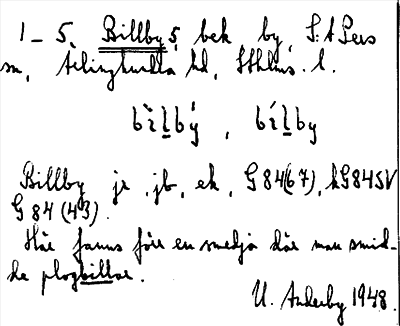 1-5, Billby 5, bek by, S:t Pers
sn, Ärlinghundra hd, Sthlms. l.
bìlbý, bílby
Billby je, jb, ek, G 84(67), kG84SV
G 84 (43).
Här fanns förr en smedja där man smid-
de plogbillar.
U. Anderby 1948.